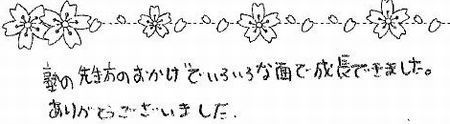 塾の先生方のおかげでいろいろな面で成長できました。
ありがとうございました.